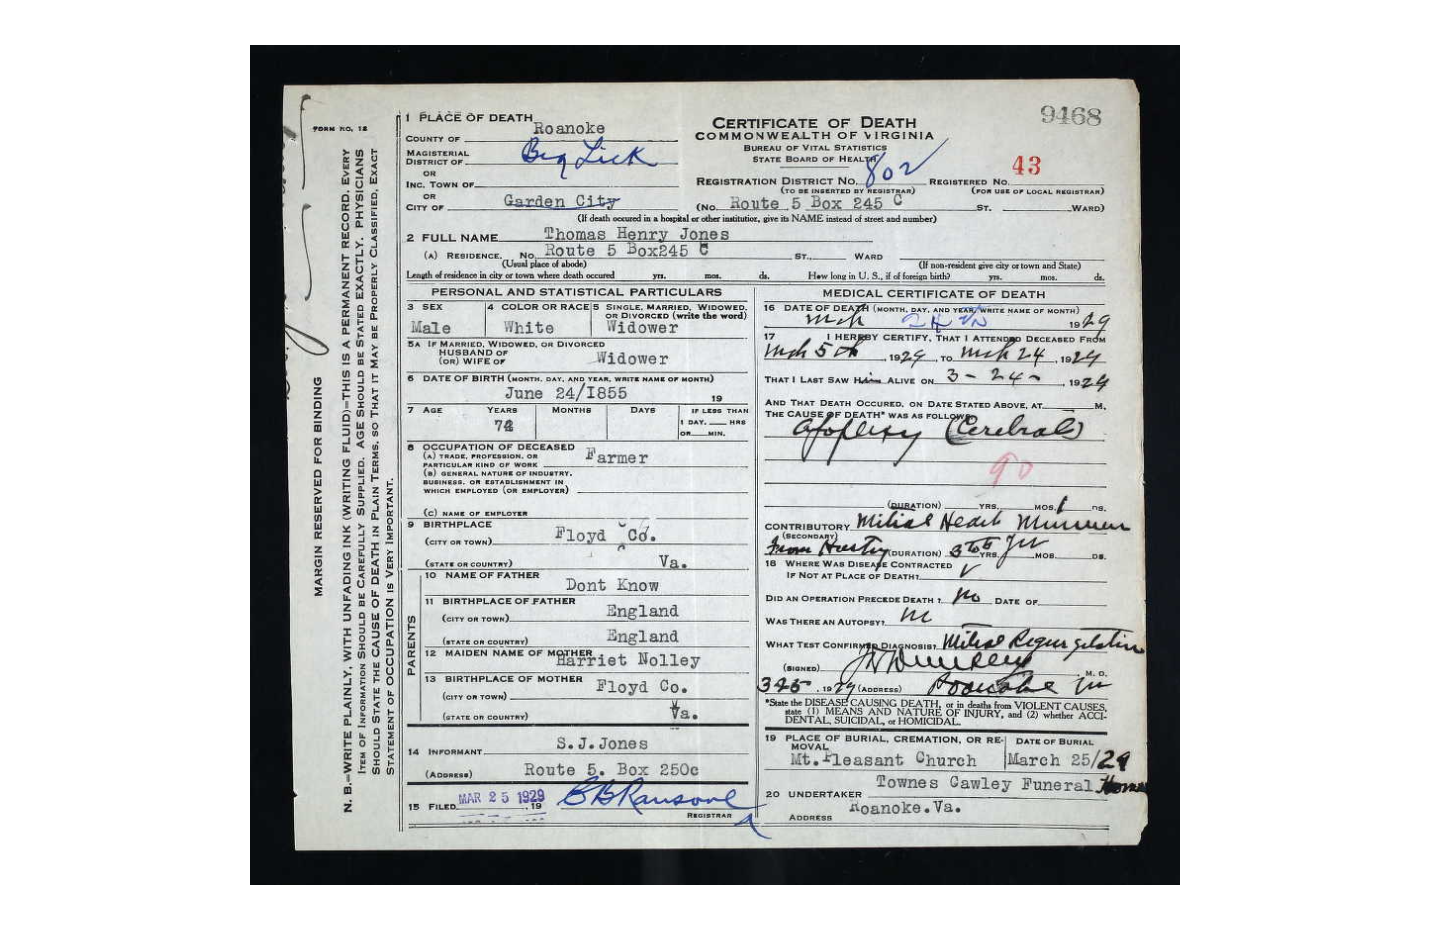 9468
FORM NO. 12
MARGIN RESERVED FOR BINDING
N. B.—WRITE PLAINLY, WITH UNFADING INK (WRITING FLUID)—THIS IS A PERMANENT RECORD. EVERY
ITEM OF INFORMATION SHOULD BE CAREFULLY SUPPLIED. AGE SHOULD BE STATED EXACTLY. PHYSICIANS
SHOULD STATE THE CAUSE OF DEATH IN PLAIN TERMS, SO THAT IT MAY BE PROPERLY CLASSIFIED, EXACT
STATEMENT OF OCCUPATION IS VERY IMPORTANT.
1 PLACE OF DEATH
COUNTY OF Roanoke
MAGISTERIAL
DISTRICT OF Big Lick
OR
INC. TOWN OF
OR
CITY OF Garden City
CERTIFICATE OF DEATH
COMMONWEALTH OF VIRGINIA
BUREAU OF VITAL STATISTICS
STATE BOARD OF HEALTH
REGISTRATION DISTRICT NO. 802 REGISTERED NO. 43
(TO BE INSERTED BY REGISTRAR) (FOR USE OF LOCAL REGISTRAR)
(No. Route 5 Box 245 C ST. WARD)
(If death occured in a hospital or other institutior, give its NAME instead of street and number)
2 FULL NAME Thomas Henry Jones
(A) RESIDENCE. No. Route 5 Box245 C ST., WARD
(Usual place of abode) (If non-resident give city or town and State)
Length of residence in city or town where death occured yrs. mos. ds. How long in U. S., if of foreign birth? yrs. mos. ds.
PERSONAL AND STATISTICAL PARTICULARS
3 SEX 4 COLOR OR RACE 5 SINGLE, MARRIED, WIDOWED,
OR DIVORCED (write the word)
Male White Widower
5A IF MARRIED, WIDOWED, OR DIVORCED
HUSBAND OF
(OR) WIFE OF Widower
6 DATE OF BIRTH (MONTH, DAY, AND YEAR, WRITE NAME OF MONTH)
June 24/1855 19
7 AGE YEARS MONTHS DAYS IF LESS THAN
1 DAY, HRS
OR MIN.
74
8 OCCUPATION OF DECEASED
(A) TRADE, PROFESSION, OR
PARTICULAR KIND OF WORK Farmer
(B) GENERAL NATURE OF INDUSTRY,
BUSINESS, OR ESTABLISHMENT IN
WHICH EMPLOYED (OR EMPLOYER)
(C) NAME OF EMPLOYER
9 BIRTHPLACE
(CITY OR TOWN) Floyd Co.
(STATE OR COUNTRY) Va.
PARENTS
10 NAME OF FATHER
Dont Know
11 BIRTHPLACE OF FATHER
(CITY OR TOWN) England
(STATE OR COUNTRY) England
12 MAIDEN NAME OF MOTHER
Harriet Nolley
13 BIRTHPLACE OF MOTHER
(CITY OR TOWN) Floyd Co.
(STATE OR COUNTRY) Va.
14 INFORMANT S.J.Jones
(ADDRESS) Route 5. Box 250c
15 FILED MAR 25 1929 19 B B Ransone
REGISTRAR
MEDICAL CERTIFICATE OF DEATH
16 DATE OF DEATH (MONTH, DAY, AND YEAR, WRITE NAME OF MONTH)
Mch 24th 1929
17 I HEREBY CERTIFY, THAT I ATTENDED DECEASED FROM
Mch 5th, 1929, TO Mch 24, 1929
THAT I LAST SAW Him ALIVE ON 3-24-, 1929
AND THAT DEATH OCCURED, ON DATE STATED ABOVE, AT M.
THE CAUSE OF DEATH* WAS AS FOLLOWS
Apoplexy (Cerebral)
90
(DURATION) YRS. MOS. 1 DS.
CONTRIBUTORY Mitral Heart Murmur
(SECONDARY)
From History (DURATION) 3 to 5 YRS. MOS. DS.
18 WHERE WAS DISEASE CONTRACTED
IF NOT AT PLACE OF DEATH?
DID AN OPERATION PRECEDE DEATH? No DATE OF
WAS THERE AN AUTOPSY?
WHAT TEST CONFIRMED DIAGNOSIS? Mitral Regurgitation
(SIGNED) M. D.
, 1929 (ADDRESS) Roanoke
*State the DISEASE CAUSING DEATH, or in deaths from VIOLENT CAUSES,
state (1) MEANS AND NATURE OF INJURY, and (2) whether ACCI-
DENTAL, SUICIDAL, or HOMICIDAL.
19 PLACE OF BURIAL, CREMATION, OR RE-
MOVAL DATE OF BURIAL
Mt.Pleasant Church March 25/29
20 UNDERTAKER Townes Cawley Funeral Home
ADDRESS Roanoke.Va.